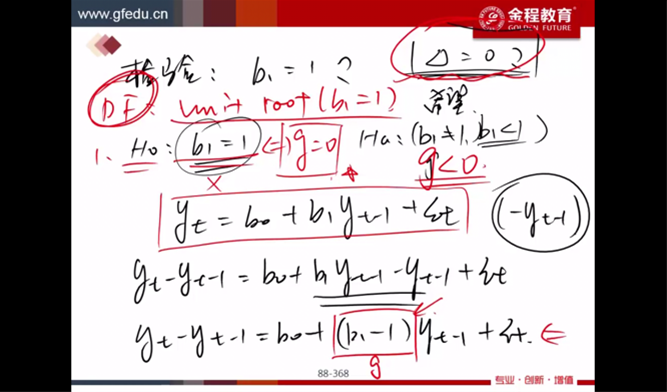 www.gfedu.cn
金程教育
GOLDEN FUTURE
检验: b₁ = 1 ? | Δ = 0 ?
DF: unit root (b₁ = 1) 希望
1. H₀: b₁ = 1 ⇔ g = 0 Hₐ: (b₁ ≠ 1, b₁ < 1)
× g < 0.
yₜ = b₀ + b₁ yₜ₋₁ + εₜ (-yₜ₋₁)
yₜ - yₜ₋₁ = b₀ + b₁ yₜ₋₁ - yₜ₋₁ + εₜ
yₜ - yₜ₋₁ = b₀ + (b₁ - 1) yₜ₋₁ + εₜ. ⇐
g
88-368
专业·创新·增值